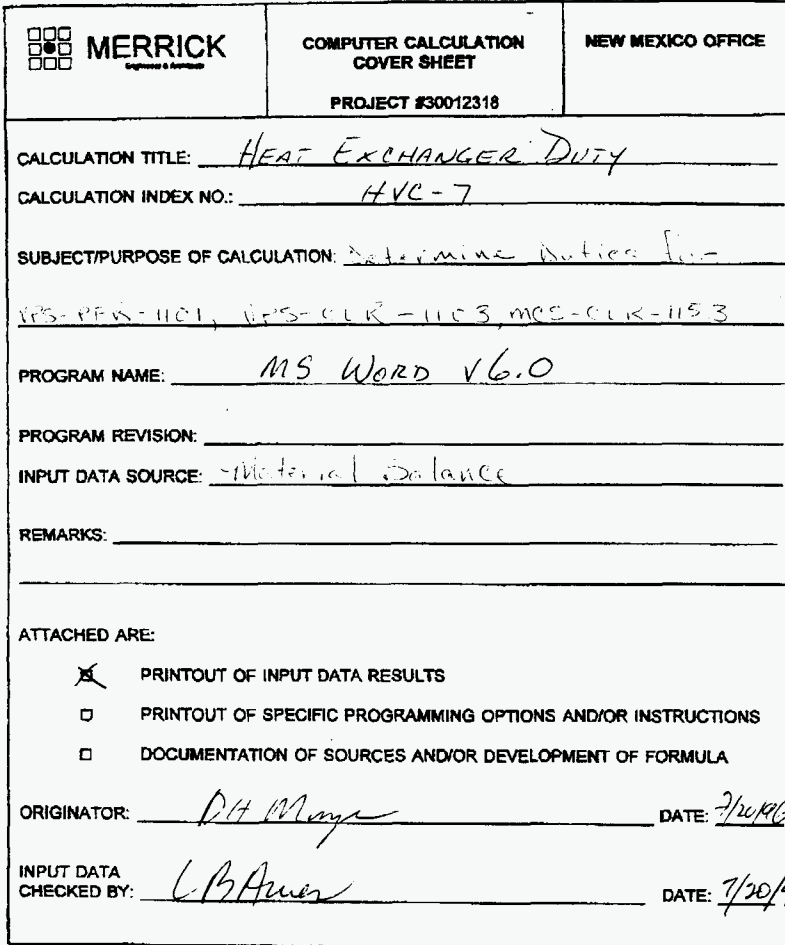 MERRICK
Engineers & Architects
COMPUTER CALCULATION
COVER SHEET
PROJECT #30012318
NEW MEXICO OFFICE
CALCULATION TITLE: HEAT EXCHANGER DUTY
CALCULATION INDEX NO.: HVC-7
SUBJECT/PURPOSE OF CALCULATION: Determine Duties for
VPS-PFR-1101, VPS-CLR-1103, MCS-CLR-1153
PROGRAM NAME: MS WORD V6.0
PROGRAM REVISION:
INPUT DATA SOURCE: Material Balance
REMARKS:
ATTACHED ARE:
PRINTOUT OF INPUT DATA RESULTS
PRINTOUT OF SPECIFIC PROGRAMMING OPTIONS AND/OR INSTRUCTIONS
DOCUMENTATION OF SOURCES AND/OR DEVELOPMENT OF FORMULA
ORIGINATOR: DH DATE: 7/20/96
INPUT DATA
CHECKED BY: LB DATE: 7/20/